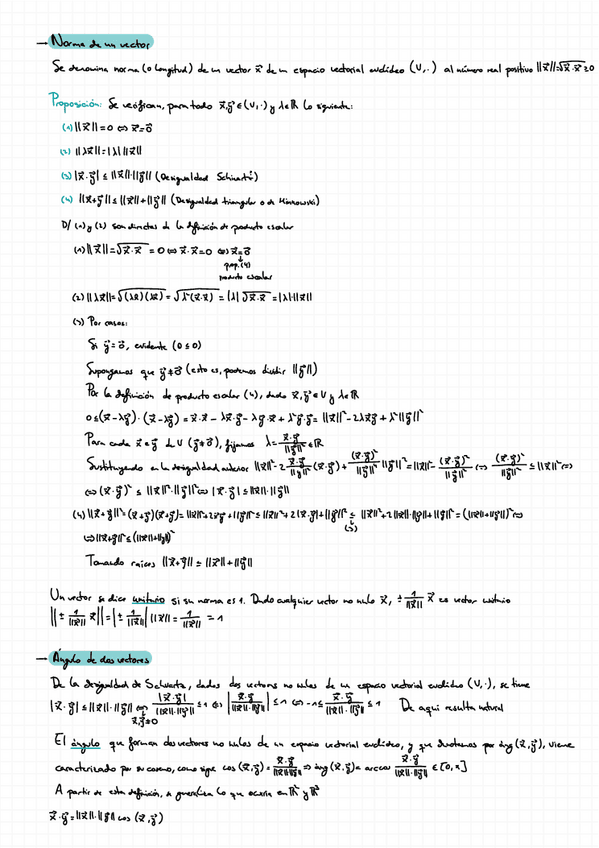 → Norma de un vector
Se denomina norma (o longitud) de un vector x⃗ de un espacio vectorial euclídeo (U,·) al número real positivo ||x⃗||=√x⃗·x⃗ ≥0
Proposición: Se verifican, para todo x⃗,y⃗ ∈ (U,·) y λ∈ℝ lo siguiente:
(1) ||x⃗|| = 0 ⇔ x⃗=0⃗
(2) ||λx⃗|| = |λ| ||x⃗||
(3) |x⃗·y⃗| ≤ ||x⃗||·||y⃗|| (Desigualdad Schwartz)
(4) ||x⃗+y⃗|| ≤ ||x⃗||+||y⃗|| (Desigualdad triangular o de Minkowski)
D/ (1) y (2) son directas de la definición de producto escalar
(1) ||x⃗|| = √x⃗·x⃗ = 0 ⇔ x⃗·x⃗=0 ⇔ x⃗=0⃗
prop.(4)
producto escalar
(2) ||λx⃗|| = √(λx⃗)(λx⃗) = √λ²(x⃗·x⃗) = |λ| √x⃗·x⃗ = |λ|·||x⃗||
(3) Por casos:
Si y⃗=0⃗, evidente (0≤0)
Supongamos que y⃗≠0⃗ (esto es, podemos dividir ||y⃗||)
Por la definición de producto escalar (4), dado x⃗,y⃗∈U y λ∈ℝ
0≤(x⃗-λy⃗)·(x⃗-λy⃗) = x⃗·x⃗ - λx⃗·y⃗ - λy⃗·x⃗ + λ²y⃗·y⃗ = ||x⃗||² - 2λx⃗y⃗ + λ²||y⃗||²
Para cada x⃗ e y⃗ de U (y⃗≠0⃗), fijamos λ = x⃗·y⃗/||y⃗||² ∈ℝ
Sustituyendo en la desigualdad anterior ||x⃗||² - 2 x⃗·y⃗/||y⃗||² (x⃗·y⃗) + (x⃗·y⃗)²/||y⃗||⁴ ||y⃗||² = ||x⃗||² - (x⃗·y⃗)²/||y⃗||² ⇔ (x⃗·y⃗)²/||y⃗||² ≤ ||x⃗||² ⇔
⇔ (x⃗·y⃗)² ≤ ||x⃗||²·||y⃗||² ⇔ |x⃗·y⃗| ≤ ||x⃗||·||y⃗||
(4) ||x⃗+y⃗||² = (x⃗+y⃗)(x⃗+y⃗) = ||x⃗||²+2x⃗y⃗+||y⃗||² ≤ ||x⃗||²+2|x⃗·y⃗|+||y⃗||² ≤ ||x⃗||²+2||x⃗||·||y⃗||+||y⃗||² = (||x⃗||+||y⃗||)² ⇔
(3)
⇔ ||x⃗+y⃗||² ≤ (||x⃗||+||y⃗||)²
Tomando raíces ||x⃗+y⃗|| ≤ ||x⃗||+||y⃗||
Un vector se dice unitario si su norma es 1. Dado cualquier vector no nulo x⃗, ± 1/||x⃗|| x⃗ es vector unitario
||± 1/||x⃗|| x⃗|| = |± 1/||x⃗||| ||x⃗|| = 1/||x⃗|| = 1
→ Ángulo de dos vectores
De la desigualdad de Schwartz, dados dos vectores no nulos de un espacio vectorial euclídeo (U,·), se tiene
|x⃗·y⃗| ≤ ||x⃗||·||y⃗|| ⇔ |x⃗·y⃗|/||x⃗||·||y⃗|| ≤ 1 ⇔ |x⃗·y⃗/||x⃗||·||y⃗||| ≤ 1 ⇔ -1≤ x⃗·y⃗/||x⃗||·||y⃗|| ≤ 1 De aquí resulta natural
x⃗,y⃗≠0
El ángulo que forman dos vectores no nulos de un espacio vectorial euclídeo, y que denotamos por áng(x⃗,y⃗), viene
caracterizado por su coseno, como sigue cos(x⃗,y⃗) = x⃗·y⃗/||x⃗||·||y⃗|| ⇒ áng(x⃗,y⃗) = arccos x⃗·y⃗/||x⃗||·||y⃗|| ∈[0,π]
A partir de esta definición, se generaliza lo que ocurría en ℝ² y ℝ³
x⃗·y⃗ = ||x⃗||·||y⃗|| cos(x⃗,y⃗)